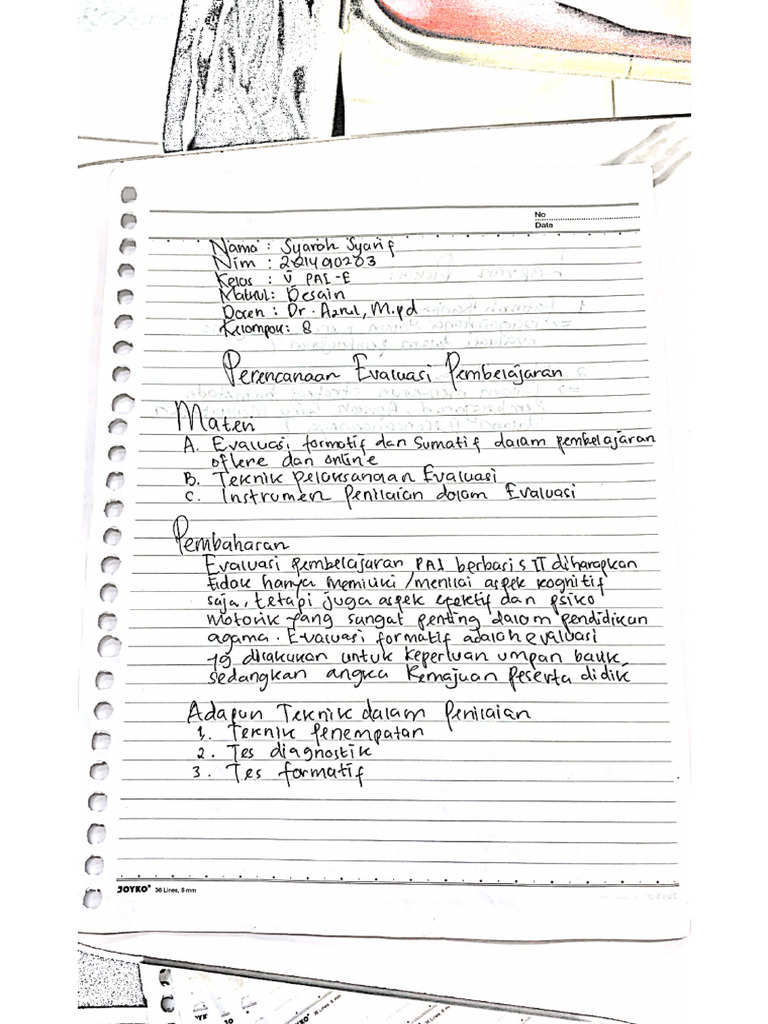 No
Date
Nama : Syaroh Syarif
Nim : 221490203
Kelas : V PAI-E
Matkul: Desain
Dosen : Dr. Azrul, M.pd
Kelompok: 8
Perencanaan Evaluasi Pembelajaran
Materi
A. Evaluasi formatif dan Sumatif dalam pembelajaran
oflene dan online
B. Teknik pelaksanaan Evaluasi
C. Instrumen Penilaian dalam Evaluasi
Pembahasan
Evaluasi pembelajaran PAI berbasis IT diharapkan
tidak hanya memiliki/menilai aspek kognitif
saja, tetapi juga aspek efektif dan psiko
motorik yang sangat penting dalam pendidikan
agama. Evaluasi formatif adalah evaluasi
yg dilakukan untuk keperluan umpan balik,
sedangkan angka Kemajuan Peserta didik
Adapun Teknik dalam Penilaian
1. Teknik Penempatan
2. Tes diagnostik
3. Tes formatif
JOYKO 36 Lines, 8 mm